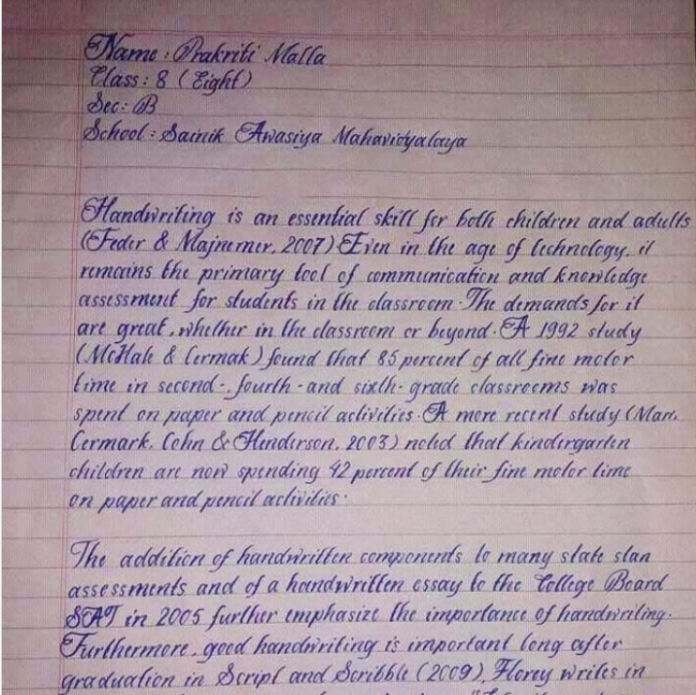 Name : Prakriti Malla
Class : 8 (Eight)
Sec : B
School : Sainik Awasiya Mahavidyalaya
Handwriting is an essential skill for both children and adults
(Feder & Majnemer, 2007) Even in the age of technology, it
remains the primary tool of communication and knowledge
assessment for students in the classroom. The demands for it
are great, whether in the classroom or beyond. A 1992 study
(McHale & Cermak) found that 85 percent of all fine motor
time in second-, fourth-and sixth-grade classrooms was
spent on paper and pencil activities. A more recent study (Marr,
Cermark, Cohn & Henderson, 2003) noted that kindergarten
children are now spending 42 percent of their fine motor time
on paper and pencil activities.
The addition of handwritten components to many state stan
assessments and of a handwritten essay to the College Board
SAT in 2005 further emphasize the importance of handwriting.
Furthermore, good handwriting is important long after
graduation in Script and Scribble (2009), Florey writes in